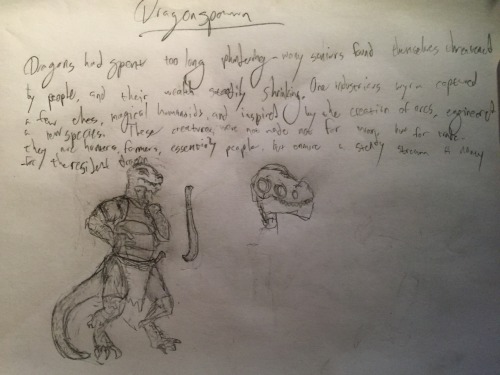 Dragonspawn
Dragons had spent too long plundering - many seniors found themselves threatened
by people, and their wealth steadily shrinking. One industrious wyrm captured
a few elves, magical humanoids, and inspired by the creation of orcs, engineered
a new species. These creatures were not made for war, but for
they are hunters, farmers, essentially people. but ensure a steady stream of money
for the resident dragon